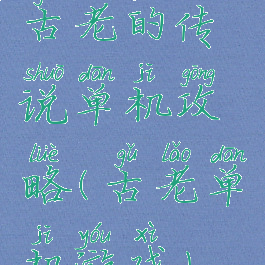 古老的传
shuō dān jī gōng
说单机攻
lüè gǔ lǎo dān
略(古老单
jī yóu xì
机游戏)